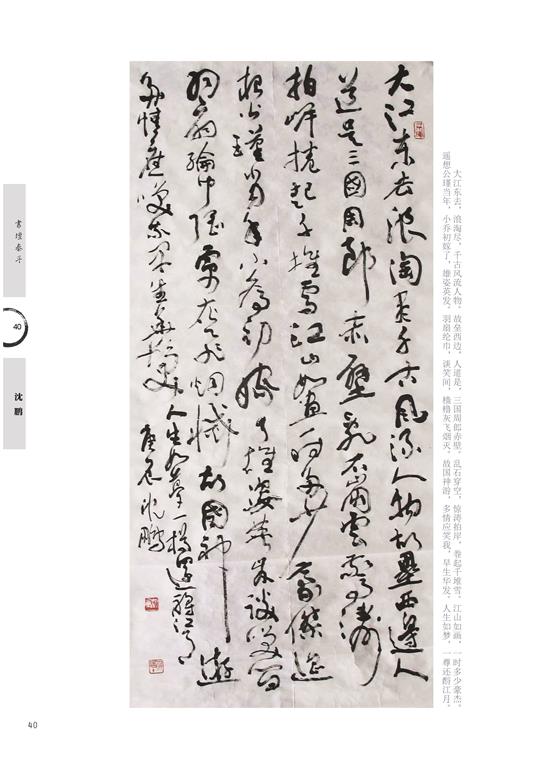 大江东去，浪淘尽，千古风流人物。故垒西边，人道是，三国周郎赤壁。乱石穿空，惊涛拍岸，卷起千堆雪。江山如画，一时多少豪杰。
遥想公瑾当年，小乔初嫁了，雄姿英发。羽扇纶巾，谈笑间，樯橹灰飞烟灭。故国神游，多情应笑我，早生华发。人生如梦，一尊还酹江月。
大江东去浪淘尽千古風流人物故壘西邊人
道是三國周郎赤壁亂石崩雲驚濤
拍岸捲起千堆雪江山如畫一时多少豪傑遥
想公瑾当年小喬初嫁了雄姿英发談笑间
羽扇綸巾强虏灰飞烟灭故國神遊
多情應笑我早生華髮人生如夢一樽還酹江月
沈鹏
書壇泰斗
40
沈鹏
40